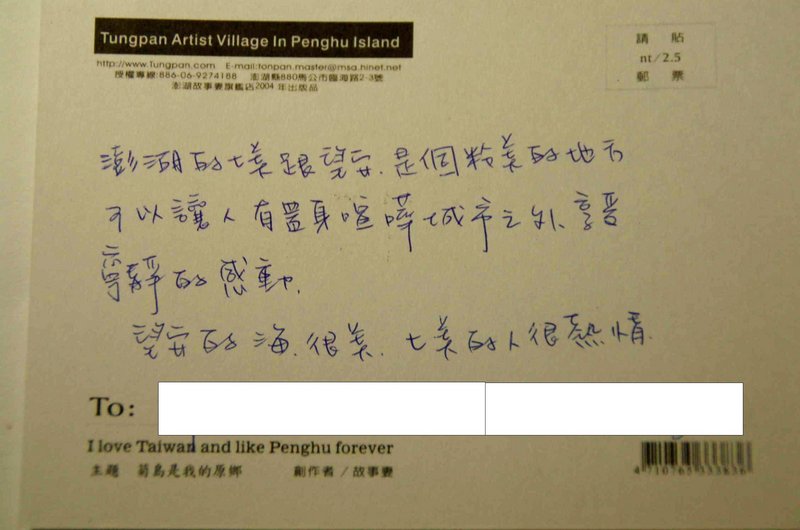 Tungpan Artist Village In Penghu Island
http://www.Tungpan.com E-mail:tonpan.master@msa.hinet.net
授權專線:886-06-9274188 澎湖縣880馬公市臨海路2-3號
澎湖故事妻旗艦店2004年出版品
請貼
nt/2.5
郵票
澎湖的七美跟望安.是個粉美的地方
可以讓人有置身喧嘩城市之外.享受
寧靜的感動.
望安的海.很美.七美的人很熱情.
To:
I love Taiwan and like Penghu forever
主題 菊島是我的原鄉 創作者/故事妻
4 710765 333836